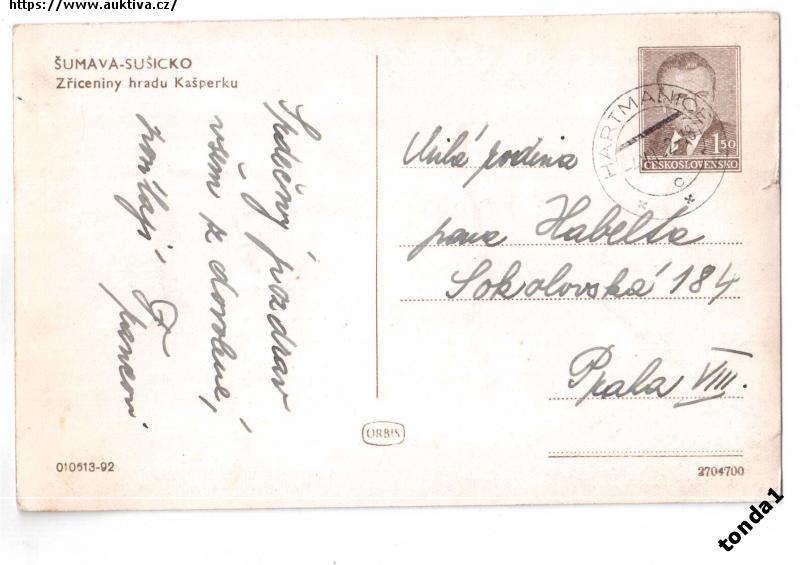 https://www.auktiva.cz/
ŠUMAVA-SUŠICKO
Zříceniny hradu Kašperku
Srdečný pozdrav
všem z dovolené,
posílají
HARTMANICE
C
1 50
ČESKOSLOVENSKO
Milá rodina
pana Habelta
Sokolovská 184
Praha VIII.
ORBIS
010613-92
2704700
tonda1